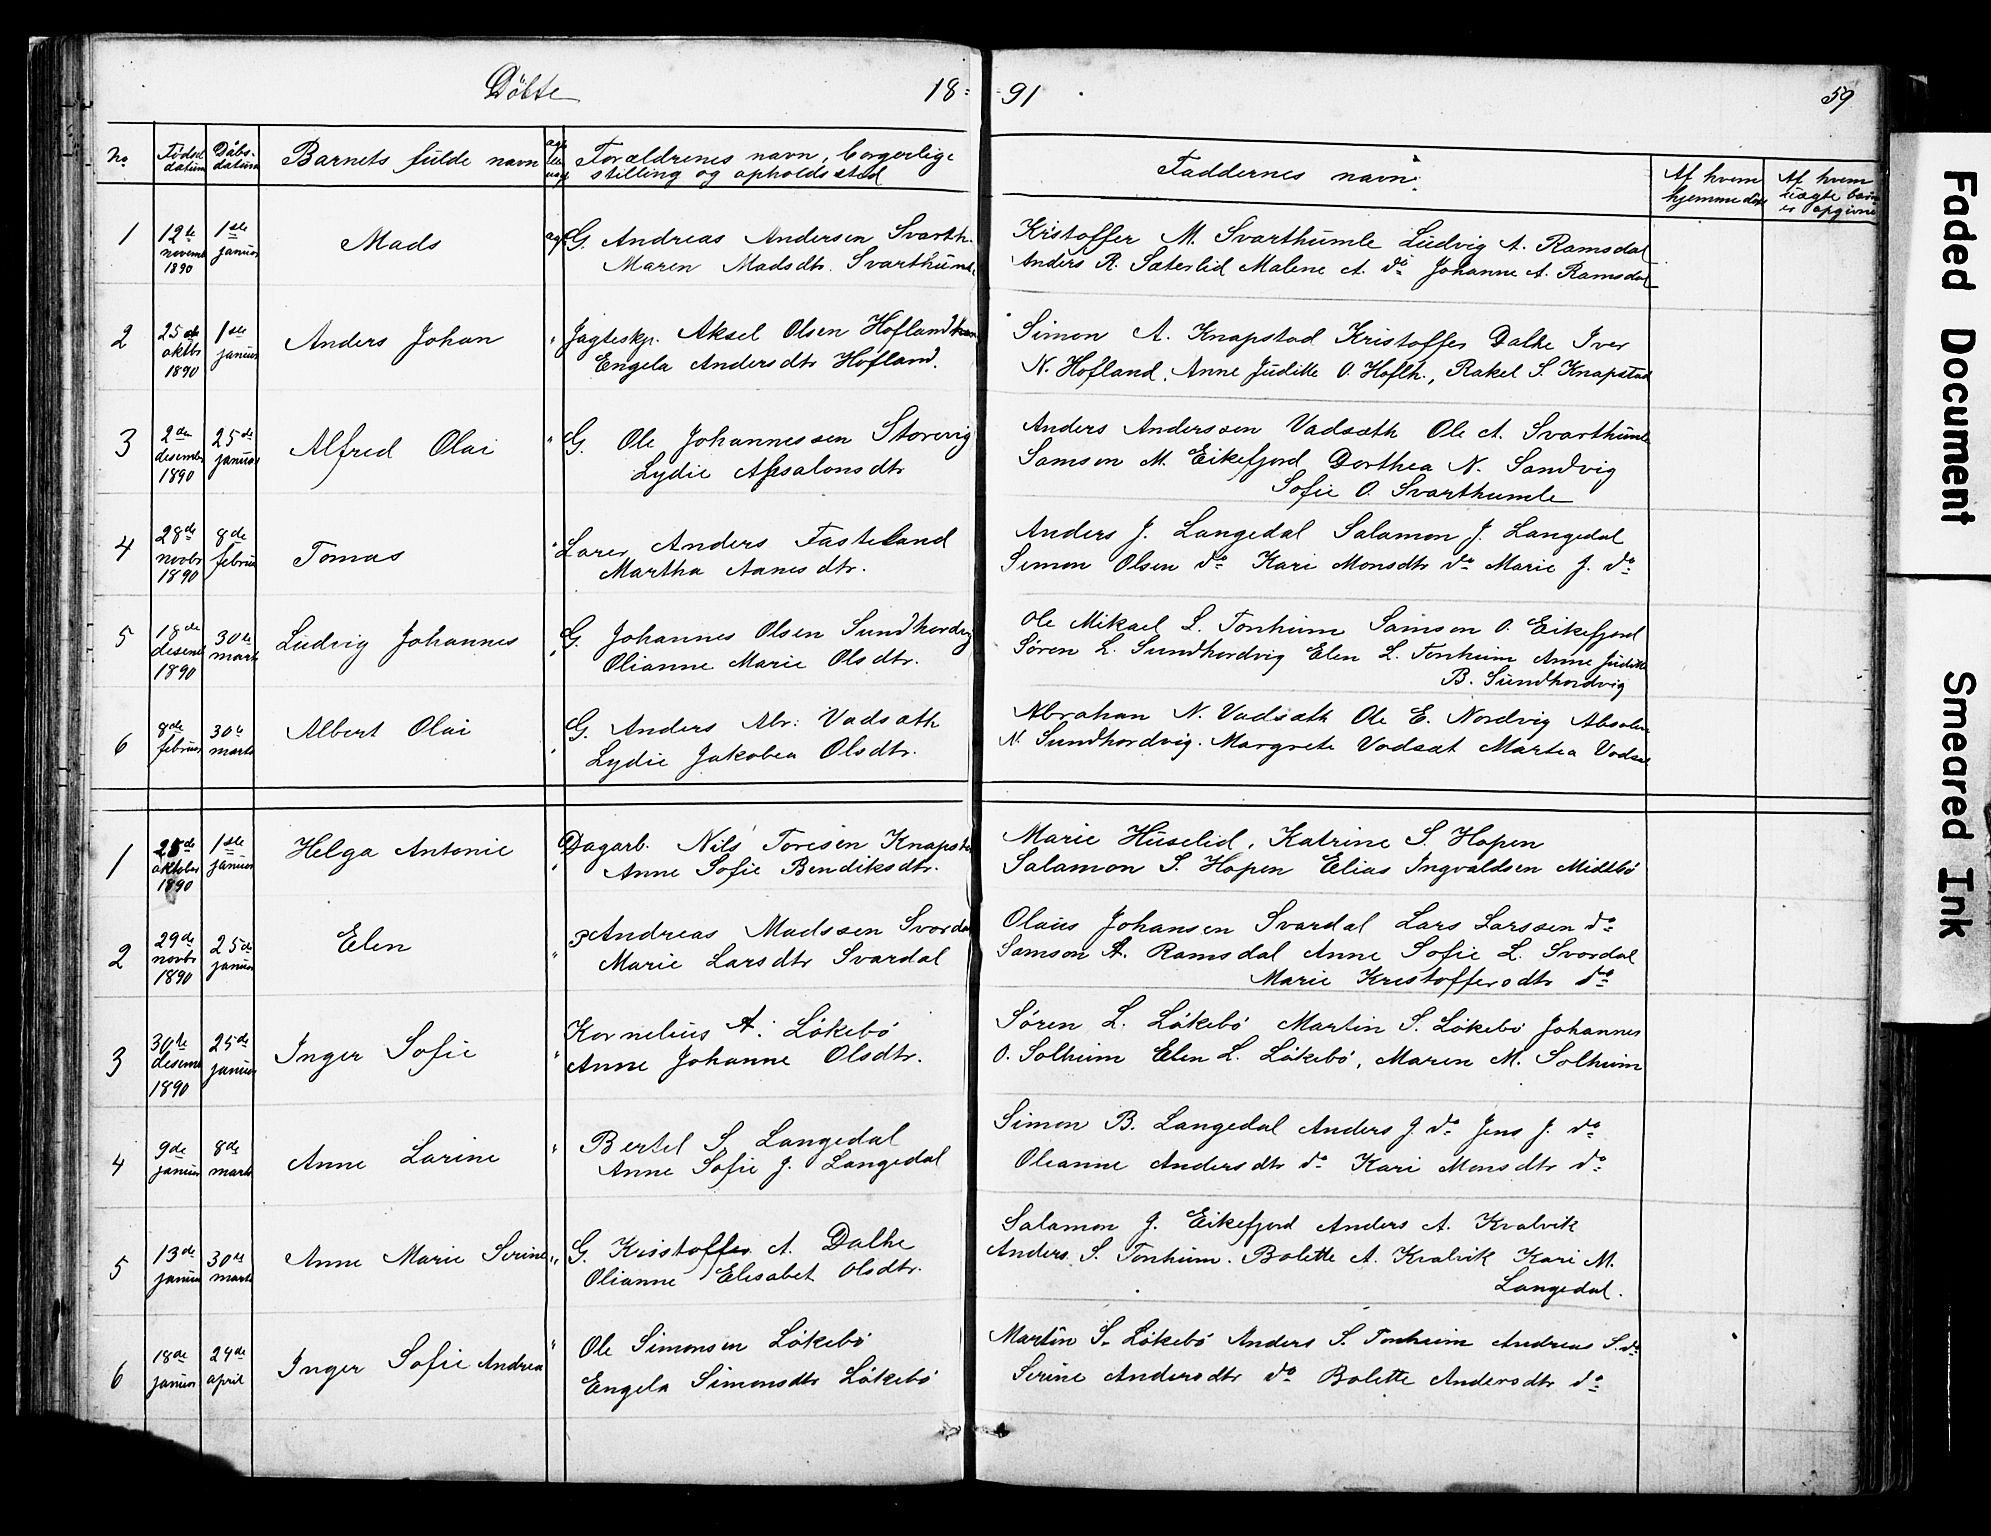 Döbte 18- -91 59
No Födsel datum Dåbs- datum Barnets fulde navn Forældrenes navn, borgerlige stilling og opholdssted Faddernes navn. Af hvem hjemmedöbt Af hvem
1 12te novemb 1890 1ste januar Mads agt. G. Andreas Andersen Svarth. Kristoffer M. Svarthumle Ludvig A. Ramsdal
Maren Madsdtr. Svarthuml. Anders R. Sæterlid Malene A. do Johanne A. Ramsdal
2 25de oktbr 1890 1ste januar Anders Johan " Jagteskp. Aksel Olsen Hofland Simon A. Knapstad Kristoffer Dalhe Iver
Engela Andersdtr Hofland. N. Hofland. Anne Juditte O. Hoflh., Rakel S. Knapstad
3 2den desembr 1890 25de januar Alfred Olai " G. Ole Johannessen Storevig Anders Anderssen Vadsæth Ole A. Svarthumle
Lydie Absalonsdtr Samson M. Eikefjord Dorthea N. Sandvig
Sofie O. Svarthumle
4 28de novbr 1890 8de februar Tomas " Lærer Anders Fasteland Anders J. Langedal Salamon J. Langedal
Martha Aanesdtr. Simon Olsen do Kari Monsdtr do Marie J. do
5 18de desemb 1890 30te marts Ludvig Johannes " G. Johannes Olsen Sundhordvig Ole Mikael L. Tonheim Samson O. Eikefjord
Olianne Marie Olsdtr. Sören L. Sundhordvig Elen L. Tonheim Anne Juditte
B. Sundhordvig
6 8de februar 30te marts Albert Olai " G. Anders Abr. Vadsæth Abraham N. Vadsæth Ole E. Nordvig Absalon
Lydie Jakobea Olsdtr. N. Sundhordvig. Margrete Vadsæt Martea Vadsæt
1 25de oktober 1890 1ste januar Helga Antonie " Dagarb. Nils Toresen Knapstad Marie Huselid, Katrine S. Hopen
Anne Sofie Bendiksdtr. Salamon S. Hopen Elias Ingvaldsen Midtbö
2 29de novbr 1890 25de januar Elen " Andreas Madssen Svardal Olaus Johansen Svardal Lars Larssen do
Marie Larsdtr Svardal Samson A. Ramsdal Anne Sofie L. Svardal
Marie Kristoffersdtr do
3 30te desemb 1890 25de januar Inger Sofie " Kornelius A. Lökebö Sören L. Lökebö Martin S. Lökebö Johannes
Anne Johanne Olsdtr. O. Solheim Elen L. Lökebö, Maren M. Solheim
4 9de januar 8de marts Anne Larine " Bertel S. Langedal Simon B. Langedal Anders J do Jens J. do
Anne Sofie J. Langedal Olianne Andersdtr do Kari Monsdtr do
5 13de januar 30te marts Anne Marie Serine " G. Kristoffer A. Dalhe Salamon J. Eikefjord Anders A. Kvalvik
Olianne Elisabet Olsdtr. Anders S. Tonheim. Bolette A. Kvalvik Kari M.
Langedal.
6 18de januar 24de april Inger Sofie Andrea " Ole Simonsen Lökebö Martin S. Lökebö Anders S. Tonheim Andreas S. do
Engela Simonsdtr Lökebö Serine Andersdtr do Bolette Andersdtr do
Faded Document
Smeared Ink